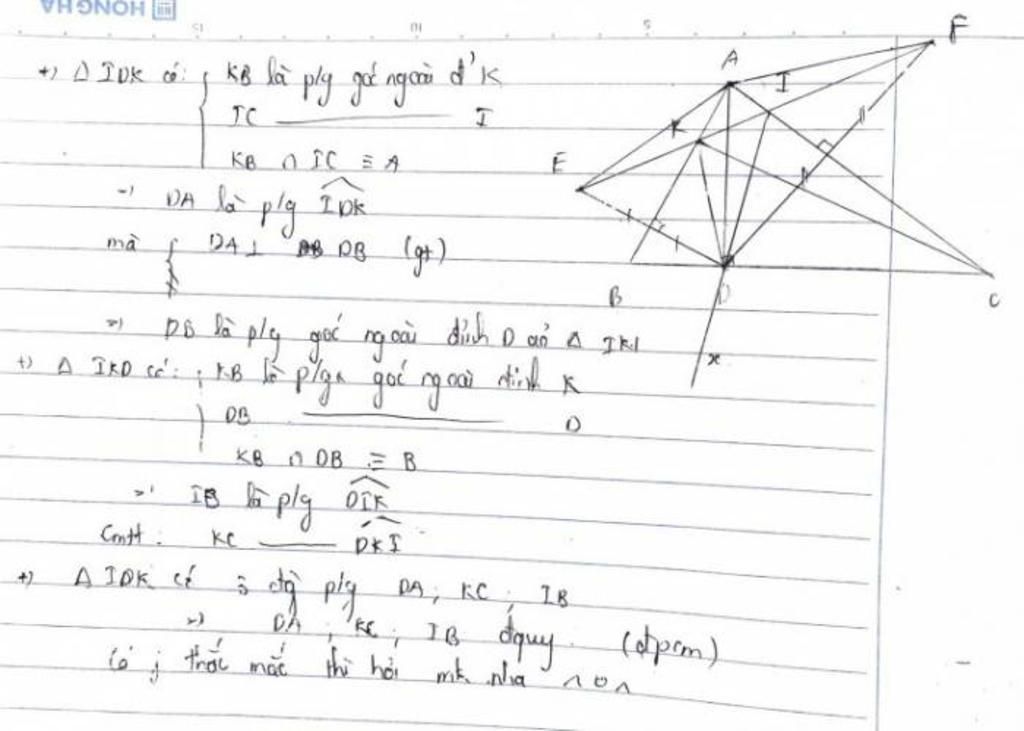 HONG HA
+) Δ IDK có: { KB là p/g góc ngoài đ' K
IC ——— I
KB ∩ IC ≡ A
=> DA là p/g IDK
mà { DA ⊥ DB (gt)
=> DB là p/g góc ngoài đỉnh D của Δ IKD
+) Δ IKD có: { KB là p/g góc ngoài đỉnh K
DB ——— D
KB ∩ DB ≡ B
=> IB là p/g DIK
Cmtt: KC ——— DKI
+) Δ IDK có 3 đg p/g DA; KC; IB
=> DA; KC; IB đquy. (đpcm)
Có j thắc mắc thì hỏi mk nha ^o^
A
I
F
K
E
B
D
C
x